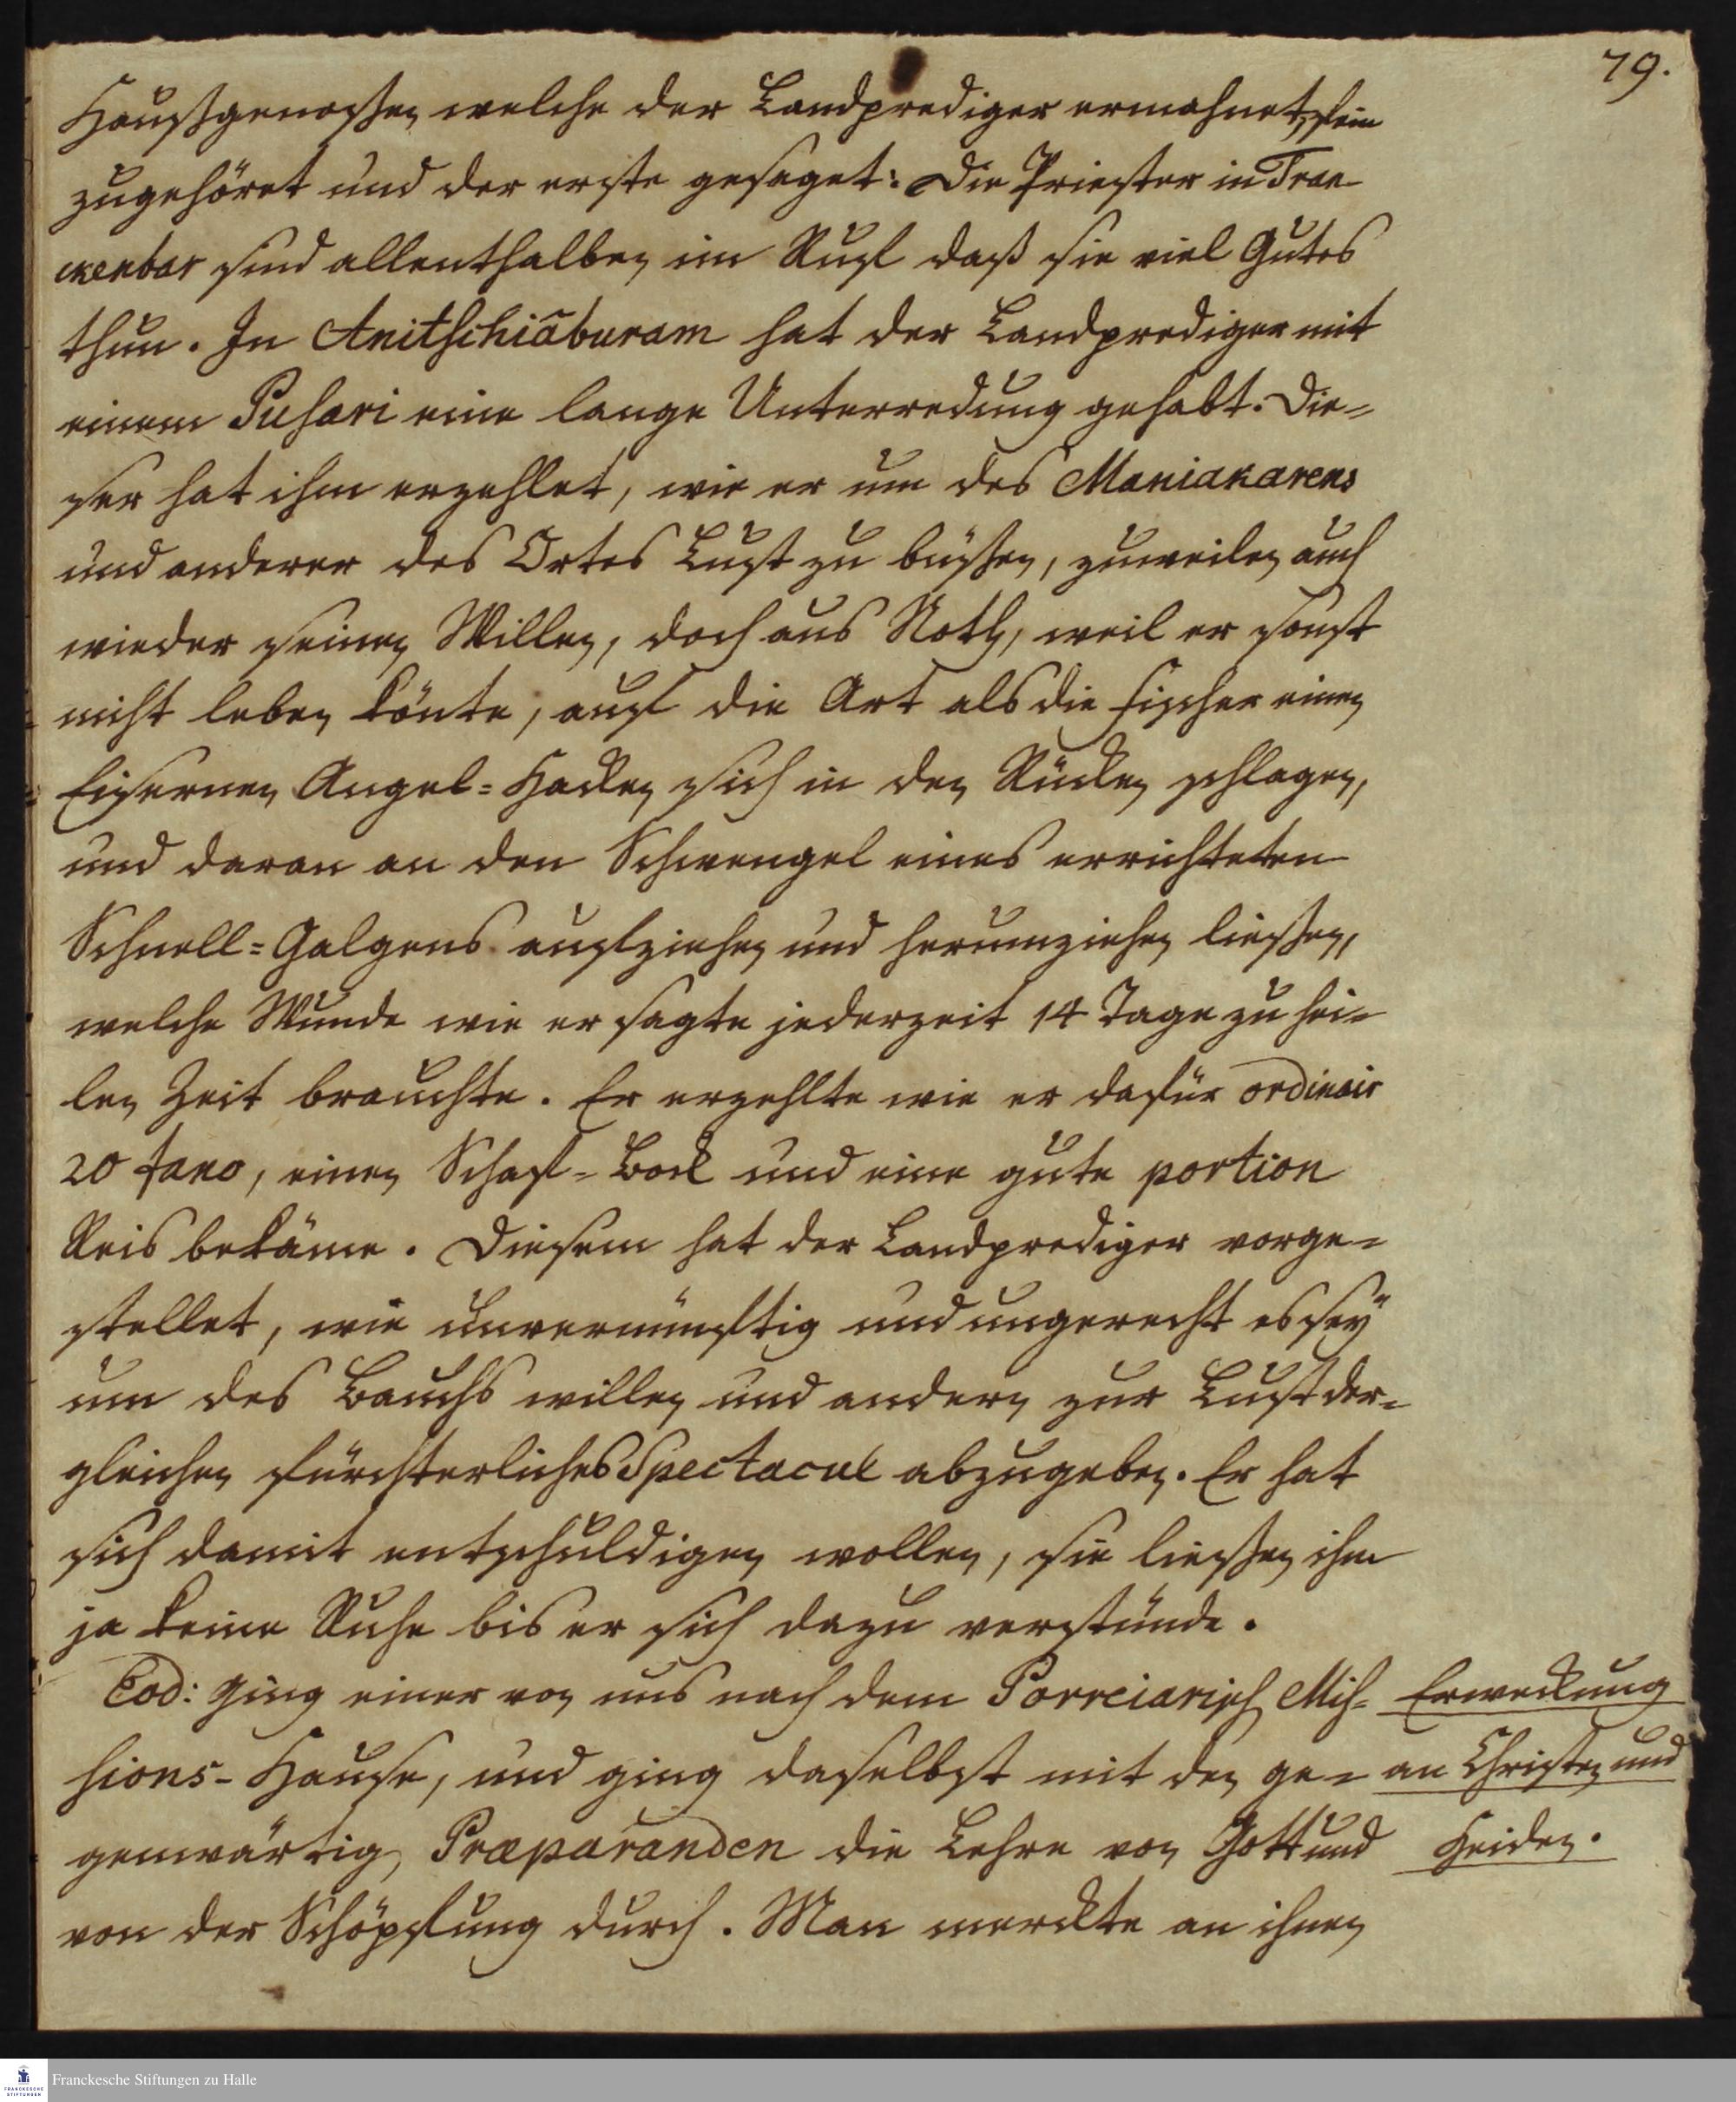 79.
Haußgenoßen welche der Landprediger ermahnet, fein
zugehöret und der erste gesaget: Die Priester in Tran
ckenbar sind allenthalben im Ruf daß sie viel Gutes
thun. In Anitschiāburam hat der Landprediger mit
einem Pusari eine lange Unterredung gehabt. Die=
ser hat ihm erzehlet, wie er um des Maniakarens
und anderer des Ortes Lust zu büßen, zuweilen auch
wieder seinen Willen, doch aus Noth, weil er sonst
nicht leben könte, auf die Art als die Fischer einen
Eisernen Angel=Hacken sich in den Rücken schlagen,
und daran an den Schwengel eines errichteten
Schnell=Galgens aufziehen und herumziehen ließen,
welche Wunde wie er sagte jederzeit 14 Tage zu hei=
len Zeit brauchte. Er erzehlte wie er dafür ordinair
20 fano, einen Schaf=Bock und eine gute portion
Reis bekäme. Diesem hat der Landprediger vorge=
stellet, wie unvernünftig und ungerecht es sey
um des Bauchs willen und andern zur Lust der=
gleichen fürchterliches Spectacul abzugeben. Er hat
sich damit entschuldigen wollen, sie ließen ihm
ja keine Ruhe bis er sich dazu verstünde.
Eod: ging einer von uns nach dem Porreiarisch Mis=
sions-Hause, und ging daselbst mit den ge=
genwärtig Præparanden die Lehre von Gott und
von der Schöpfung durch. Man merckte an ihnen
Erweckung
an Christen und
Heiden.
Franckesche Stiftungen zu Halle
FRANCKESCHE
STIFTUNGEN